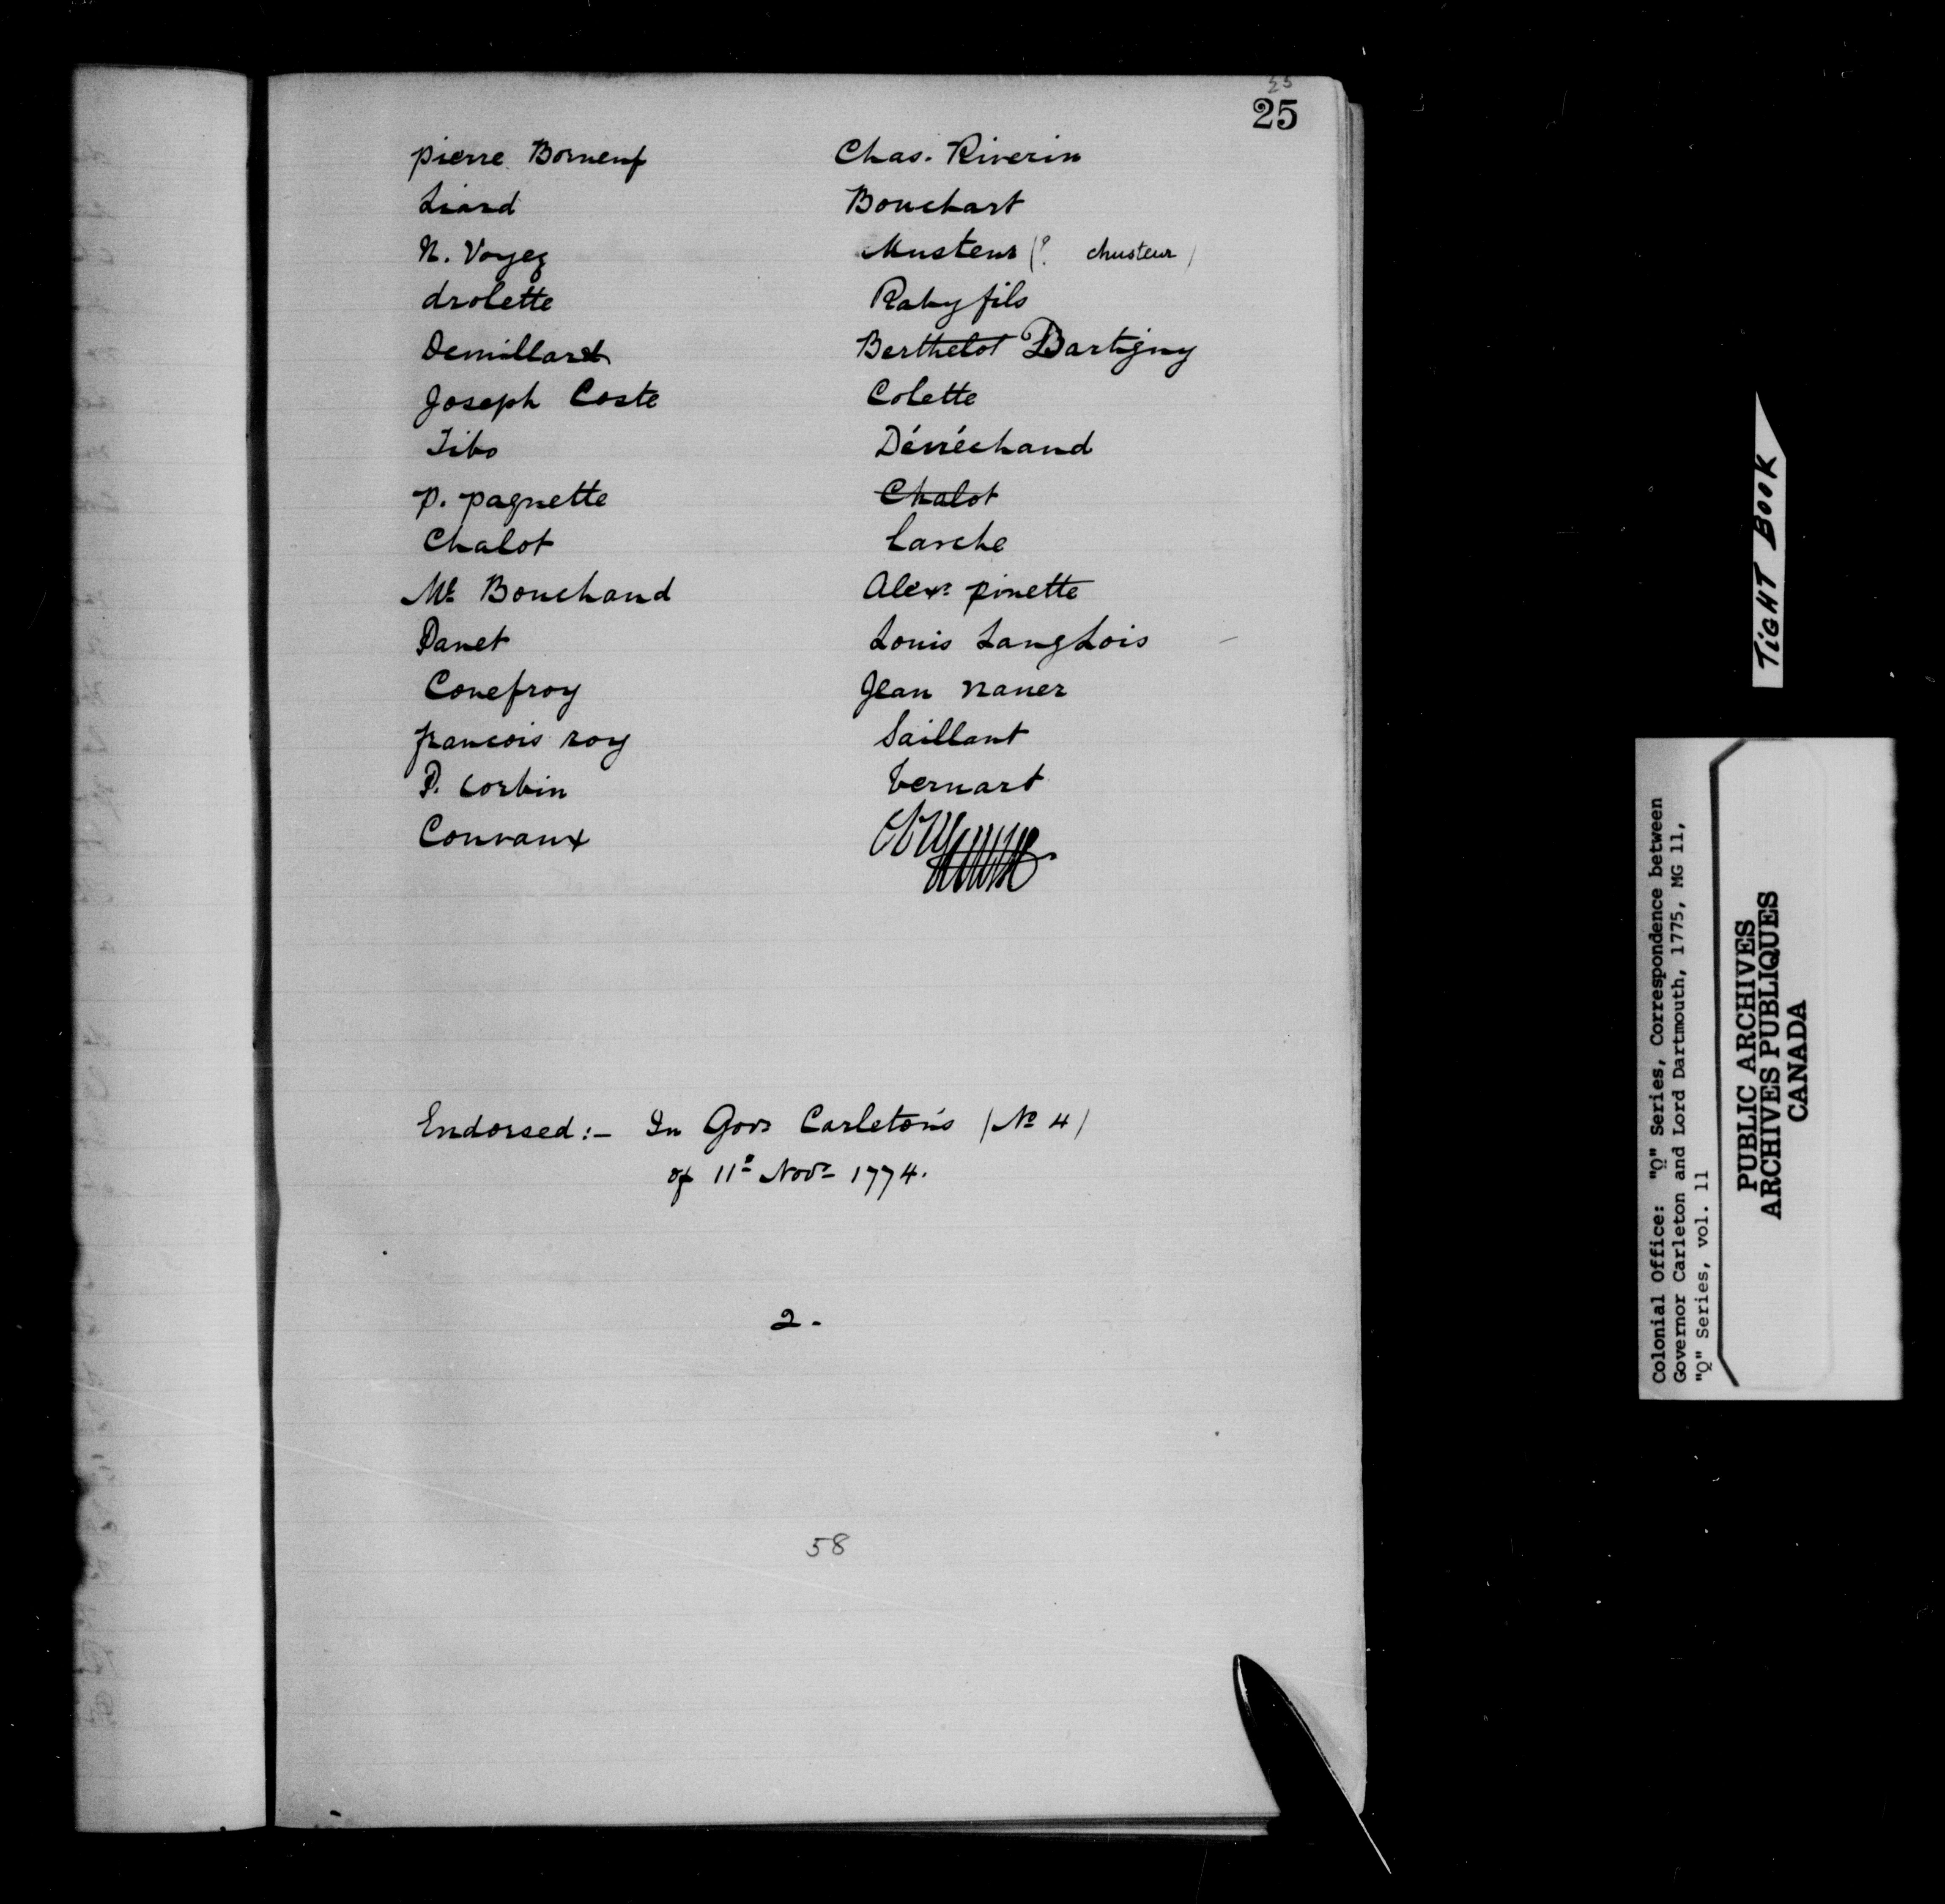 25
25
pierre Borneuf
Liard
N. Voyez
drolette
Demillard
Joseph Coste
Tibo
P. paquette
Chalot
Mr. Bouchaud
Panet
Conefroy
francois roy
P. Corbin
Convaux
Chas. Riverin
Bouchart
Musteur (? chusteur)
Raby fils
Berthelot Dartigny
Colette
Dénéchaud
Chalot
Larche
Alexr. pinette
Louis LangLois
Jean naner
Saillant
Vernart
Endorsed:- In Govr Carleton's (No 4)
of 11th Novr 1774.
2.
58
TiGHT BOOK
Colonial Office: "Q" Series, Correspondence between
Governor Carleton and Lord Dartmouth, 1775, MG 11,
"Q" Series, vol. 11
PUBLIC ARCHIVES
ARCHIVES PUBLIQUES
CANADA